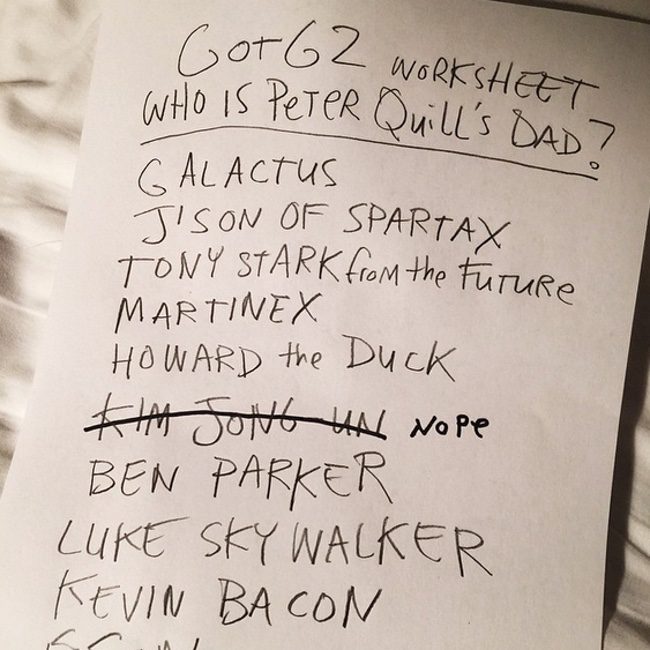 GotG2 WORKSHEET
WHO IS PETER QuiLL'S DAD?
GALACTUS
J'SON OF SPARTAX
TONY STARK from the FUTURE
MARTINEX
HOWARD the Duck
KIM JONG UN NoPe
BEN PARKER
LUKE SKYWALKER
KEVIN BACON